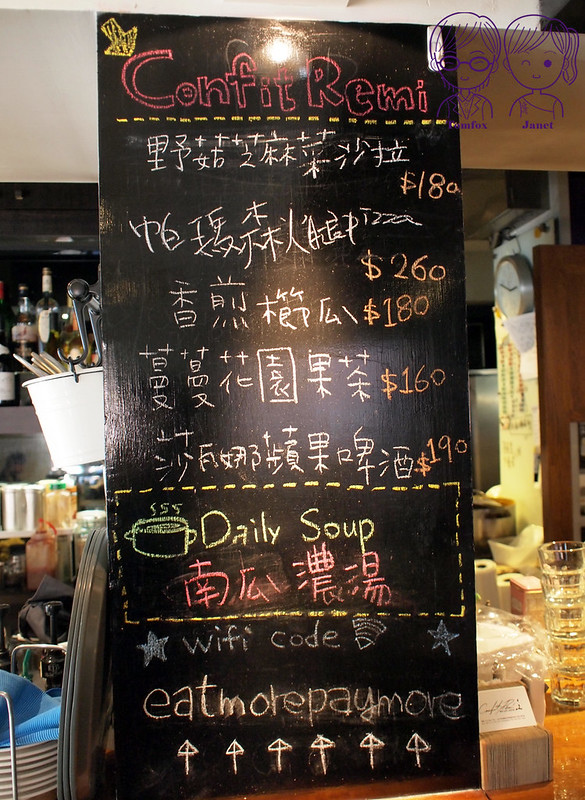 Confit Remi
野菇芝麻菜沙拉
$180
帕瑪森火腿pizza
$260
香煎櫛瓜 $180
蔓蔓花園果茶 $160
莎瓦娜蘋果啤酒 $190
Daily Soup
南瓜濃湯
wifi code
eatmorepaymore
Janet